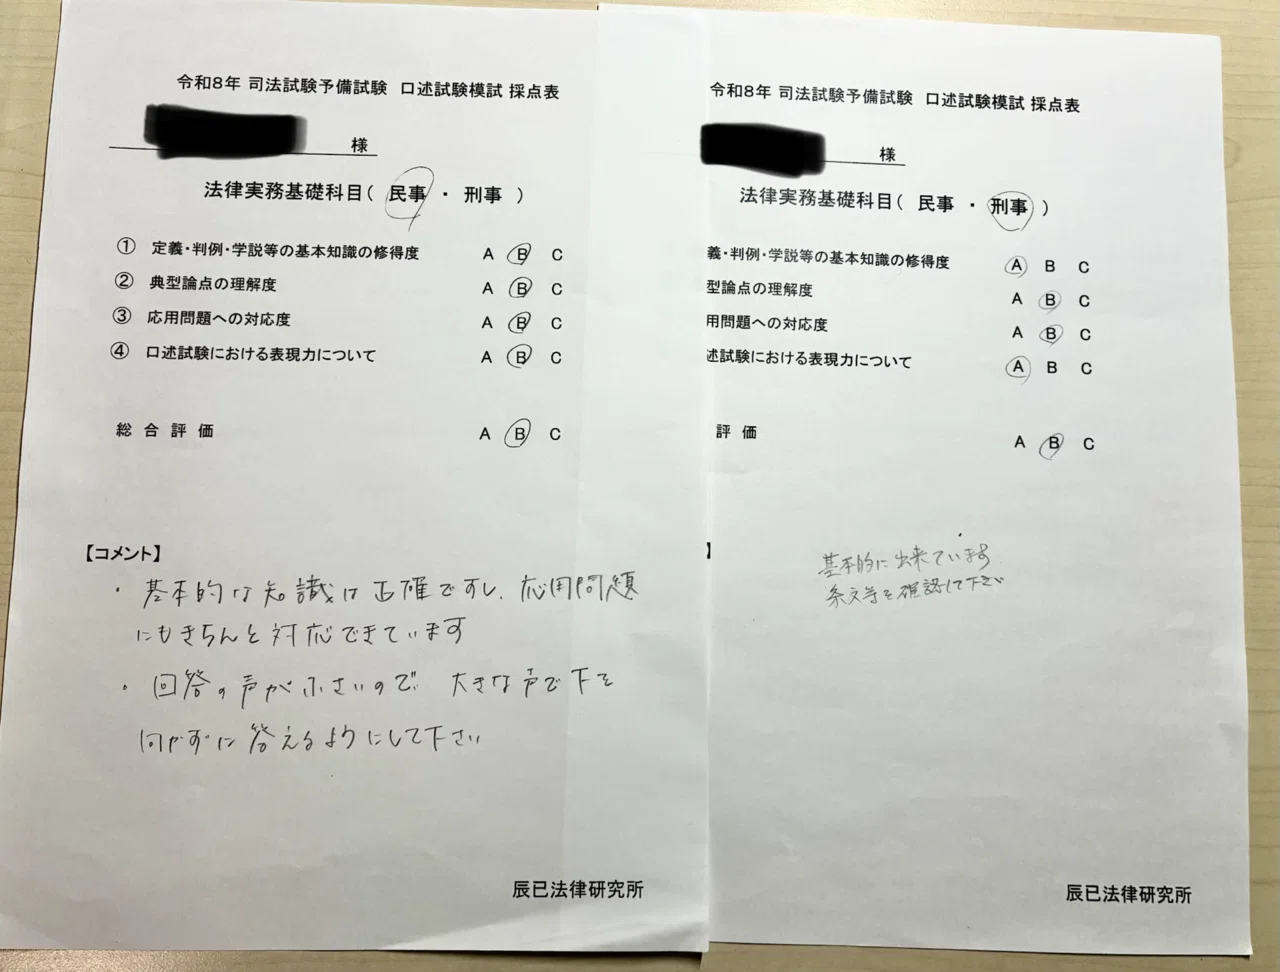 令和8年 司法試験予備試験 口述試験模試 採点表
様
法律実務基礎科目( 民事 ・ 刑事 )
① 定義・判例・学説等の基本知識の修得度 A B C
② 典型論点の理解度 A B C
③ 応用問題への対応度 A B C
④ 口述試験における表現力について A B C
総合評価 A B C
【コメント】
・基本的な知識は正確ですし、応用問題
にもきちんと対応できています
・回答の声が小さいので、大きな声で下を
向かずに答えるようにして下さい
辰已法律研究所
令和8年 司法試験予備試験 口述試験模試 採点表
様
法律実務基礎科目( 民事 ・ 刑事 )
義・判例・学説等の基本知識の修得度 A B C
型論点の理解度 A B C
用問題への対応度 A B C
述試験における表現力について A B C
評価 A B C
】
基本的に出来ています
条文等を確認して下さい
辰已法律研究所